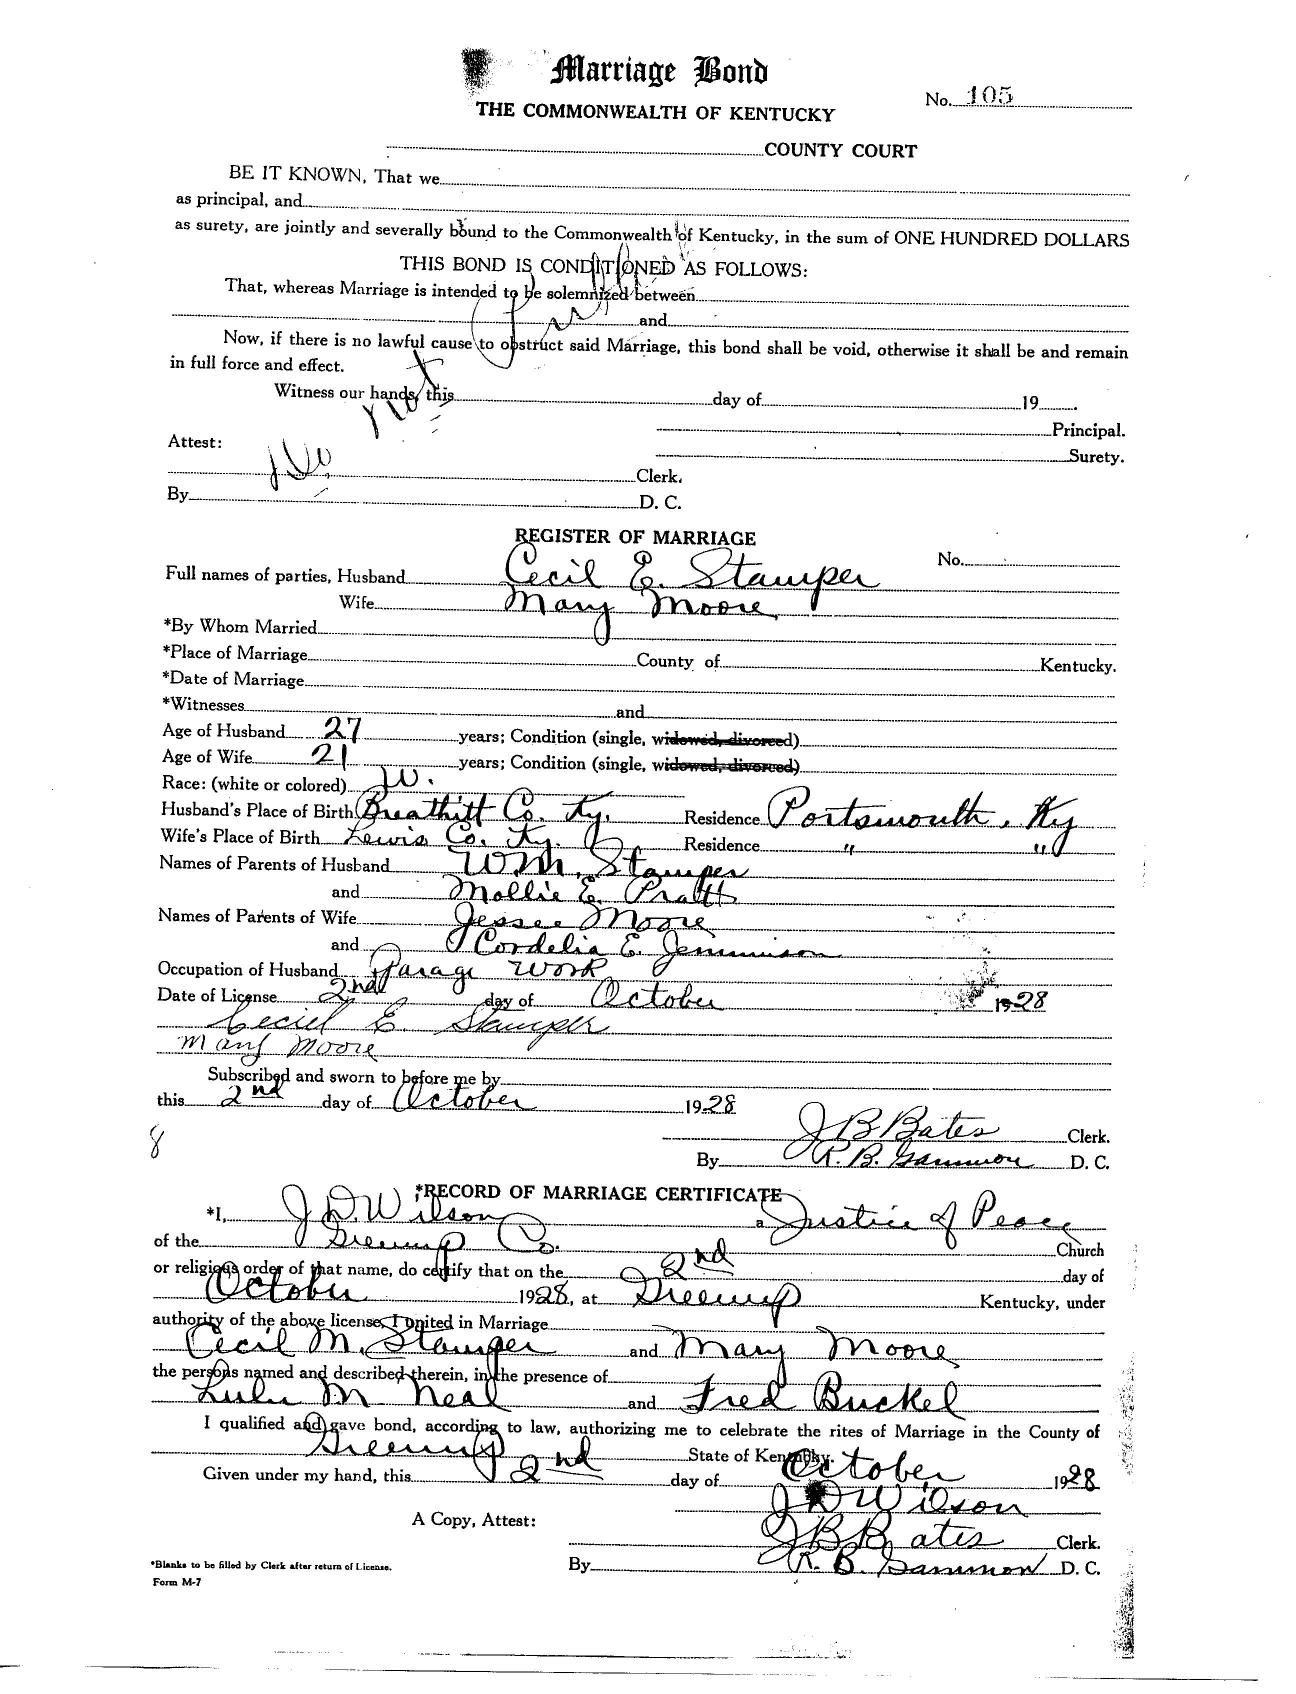 Marriage Bond
No. 105
THE COMMONWEALTH OF KENTUCKY
COUNTY COURT
BE IT KNOWN, That we
as principal, and
as surety, are jointly and severally bound to the Commonwealth of Kentucky, in the sum of ONE HUNDRED DOLLARS
THIS BOND IS CONDITIONED AS FOLLOWS:
That, whereas Marriage is intended to be solemnized between
and
Now, if there is no lawful cause to obstruct said Marriage, this bond shall be void, otherwise it shall be and remain
in full force and effect.
Witness our hands, this day of 19 .
Principal.
Attest:
Surety.
Clerk.
By D. C.
REGISTER OF MARRIAGE
No.
Full names of parties, Husband Cecil E. Stamper
Wife Mary Moore
*By Whom Married
*Place of Marriage County of Kentucky.
*Date of Marriage
*Witnesses and
Age of Husband 27 years; Condition (single, widowed, divorced)
Age of Wife 21 years; Condition (single, widowed, divorced)
Race: (white or colored) W.
Husband's Place of Birth Breathitt Co. Ky. Residence Portsmouth, Ky
Wife's Place of Birth Lewis Co. Ky. Residence " "
Names of Parents of Husband Wm. Stamper
and Mollie E. Pratt
Names of Parents of Wife Jesse Moore
and Cordelia E. Jemmison
Occupation of Husband Garage Work
Date of License 2nd day of October 1928
Ceciel E. Stamper
Mary Moore
Subscribed and sworn to before me by
this 2nd day of October 1928
8
J B Bates Clerk.
By R. B. Gammon D. C.
*RECORD OF MARRIAGE CERTIFICATE
*I, J. D. Wilson a Justice of Peace
of the Greenup Co. Church
or religious order of that name, do certify that on the 2nd day of
October 1928, at Greenup Kentucky, under
authority of the above license, I united in Marriage
Cecil M. Stamper and Mary Moore
the persons named and described therein, in the presence of
Lulu M Neal and Fred Buckel
I qualified and gave bond, according to law, authorizing me to celebrate the rites of Marriage in the County of
Greenup State of Kentucky.
Given under my hand, this 2nd day of October 1928
J D Wilson
A Copy, Attest:
J B Bates Clerk.
*Blanks to be filled by Clerk after return of License.
By R. B. Gammon D. C.
Form M-7